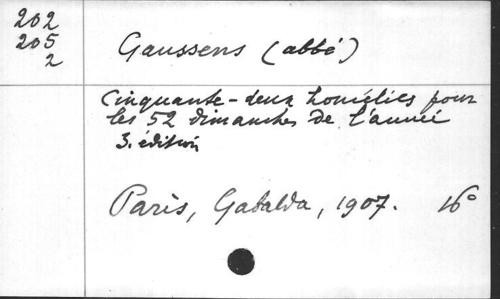 202
205
2
Gaussens (abbé)
Cinquante-deux homélies pour
les 52 dimanches de l'année
3. édition
Paris, Gabalda, 1907. 16°